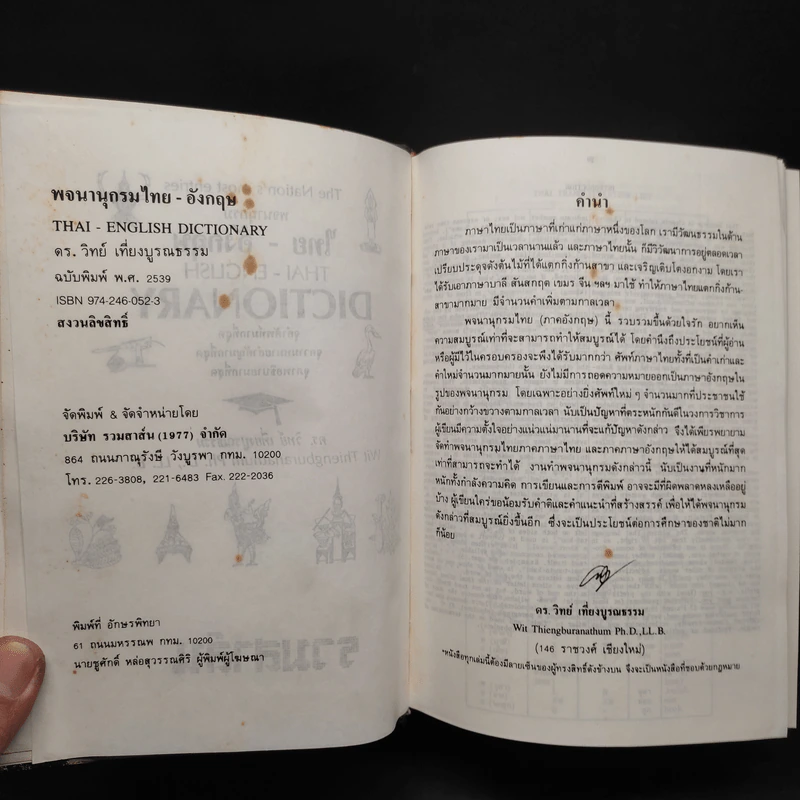 พจนานุกรมไทย - อังกฤษ
THAI - ENGLISH DICTIONARY
ดร. วิทย์ เที่ยงบูรณธรรม
ฉบับพิมพ์ พ.ศ. 2539
ISBN 974-246-052-3
สงวนลิขสิทธิ์
จัดพิมพ์ & จัดจำหน่ายโดย
บริษัท รวมสาส์น (1977) จำกัด
864 ถนนภาณุรังษี วังบูรพา กทม. 10200
โทร. 226-3808, 221-6483 Fax. 222-2036
พิมพ์ที่ อักษรพิทยา
61 ถนนมหรรณพ กทม. 10200
นายชูศักดิ์ หล่อสุวรรณศิริ ผู้พิมพ์ผู้โฆษณา
คำนำ
ภาษาไทยเป็นภาษาที่เก่าแก่ภาษาหนึ่งของโลก เรามีวัฒนธรรมในด้าน
ภาษาของเรามาเป็นเวลานานแล้ว และภาษาไทยนั้น ก็มีวิวัฒนาการอยู่ตลอดเวลา
เปรียบประดุจดังต้นไม้ที่ได้แตกกิ่งก้านสาขา และเจริญเติบโตงอกงาม โดยเรา
ได้รับเอาภาษาบาลี สันสกฤต เขมร จีน ฯลฯ มาใช้ ทำให้ภาษาไทยแตกกิ่งก้าน-
สาขามากมาย มีจำนวนคำเพิ่มตามกาลเวลา
พจนานุกรมไทย (ภาคอังกฤษ) นี้ รวบรวมขึ้นด้วยใจรัก อยากเห็น
ความสมบูรณ์เท่าที่จะสามารถทำให้สมบูรณ์ได้ โดยคำนึงถึงประโยชน์ที่ผู้อ่าน
หรือผู้มีไว้ในครอบครองจะพึงได้รับมากกว่า ศัพท์ภาษาไทยทั้งที่เป็นคำเก่าและ
คำใหม่จำนวนมากมายนั้น ยังไม่มีการถอดความหมายออกเป็นภาษาอังกฤษใน
รูปของพจนานุกรม โดยเฉพาะอย่างยิ่งศัพท์ใหม่ ๆ จำนวนมากที่ประชาชนใช้
กันอย่างกว้างขวางตามกาลเวลา นับเป็นปัญหาที่ตระหนักกันดีในวงการวิชาการ
ผู้เขียนมีความตั้งใจอย่างแน่วแน่มานานที่จะแก้ปัญหาดังกล่าว จึงได้เพียรพยายาม
จัดทำพจนานุกรมไทยภาคภาษาไทย และภาคภาษาอังกฤษให้ได้สมบูรณ์ที่สุด
เท่าที่สามารถจะทำได้ งานทำพจนานุกรมดังกล่าวนี้ นับเป็นงานที่หนักมาก
หนักทั้งกำลังความคิด การเขียนและการตีพิมพ์ อาจจะมีที่ผิดพลาดหลงเหลืออยู่
บ้าง ผู้เขียนใคร่ขอน้อมรับคำติและคำแนะนำที่สร้างสรรค์ เพื่อให้ได้พจนานุกรม
ดังกล่าวที่สมบูรณ์ยิ่งขึ้นอีก ซึ่งจะเป็นประโยชน์ต่อการศึกษาของชาติไม่มาก
ก็น้อย
ดร. วิทย์ เที่ยงบูรณธรรม
Wit Thiengburanathum Ph.D.,LL.B.
(146 ราชวงศ์ เชียงใหม่)
*หนังสือทุกเล่มนี้ต้องมีลายเซ็นของผู้ทรงสิทธิ์ดังข้างบน จึงจะเป็นหนังสือที่ชอบด้วยกฎหมาย